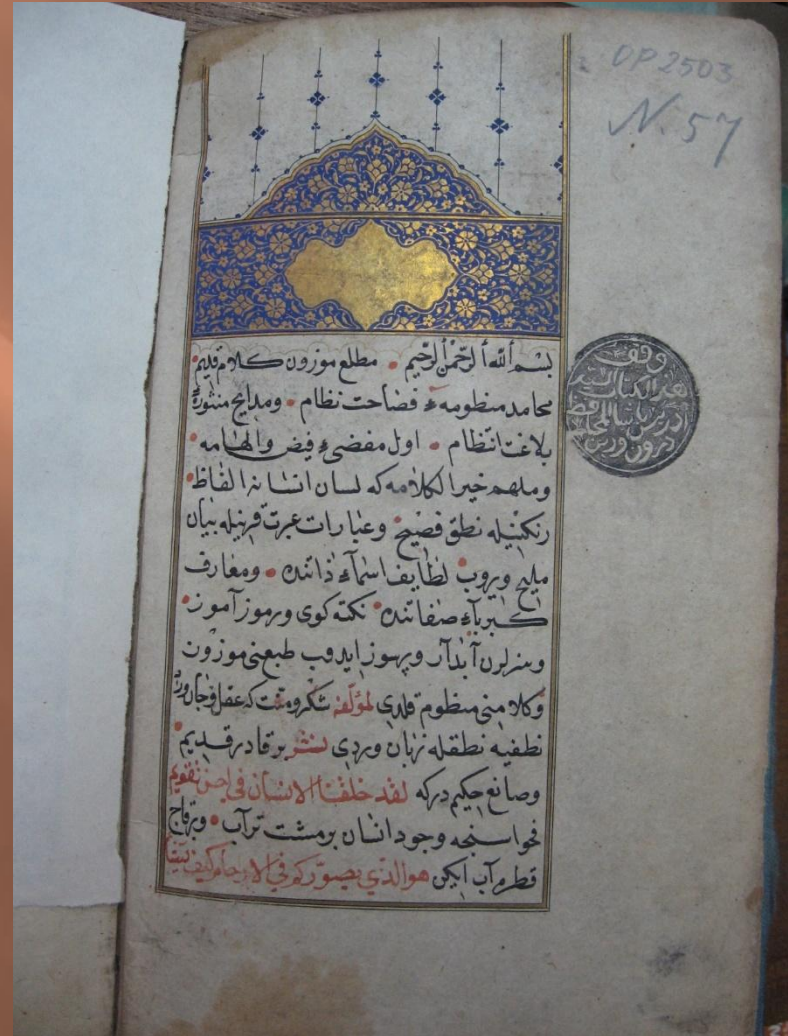 OP 2503
N. 57
بسم الله الرحمن الرحيم مطلع موزون كلام قديم
محامد منظومهٔ فصاحت نظام ومدايح منثورهٔ
بلاغت انتظام اول مفضئ فيض والهامه
وملهم خير الكلامه كه لسان انسانه الفاظ
رنكينيله نطق فصيح وعبارات عبرت قرينيله بيان
مليح ويروب لطايف اسمآء ذاتنده ومعارف
كبريآء صفاتنده نكته كوى ورموز آموز
ايدوب طبعنى موزون
وكلامنى منظوم قلدى لمؤلفه شكر ومنت كه عقل وجان وردى
نطقيه نطقله زبان وردى نثر بر قادر قديم
وصانع حكيم دركه لقد خلقنا الانسان فى احسن تقويم
فحواسنجه وجود انسان بر مشت تراب وبرقاج
قطره آب ايكن هو الذي يصوركم في الارحام كيف يشآء
وقف
هذا الكتاب السيد